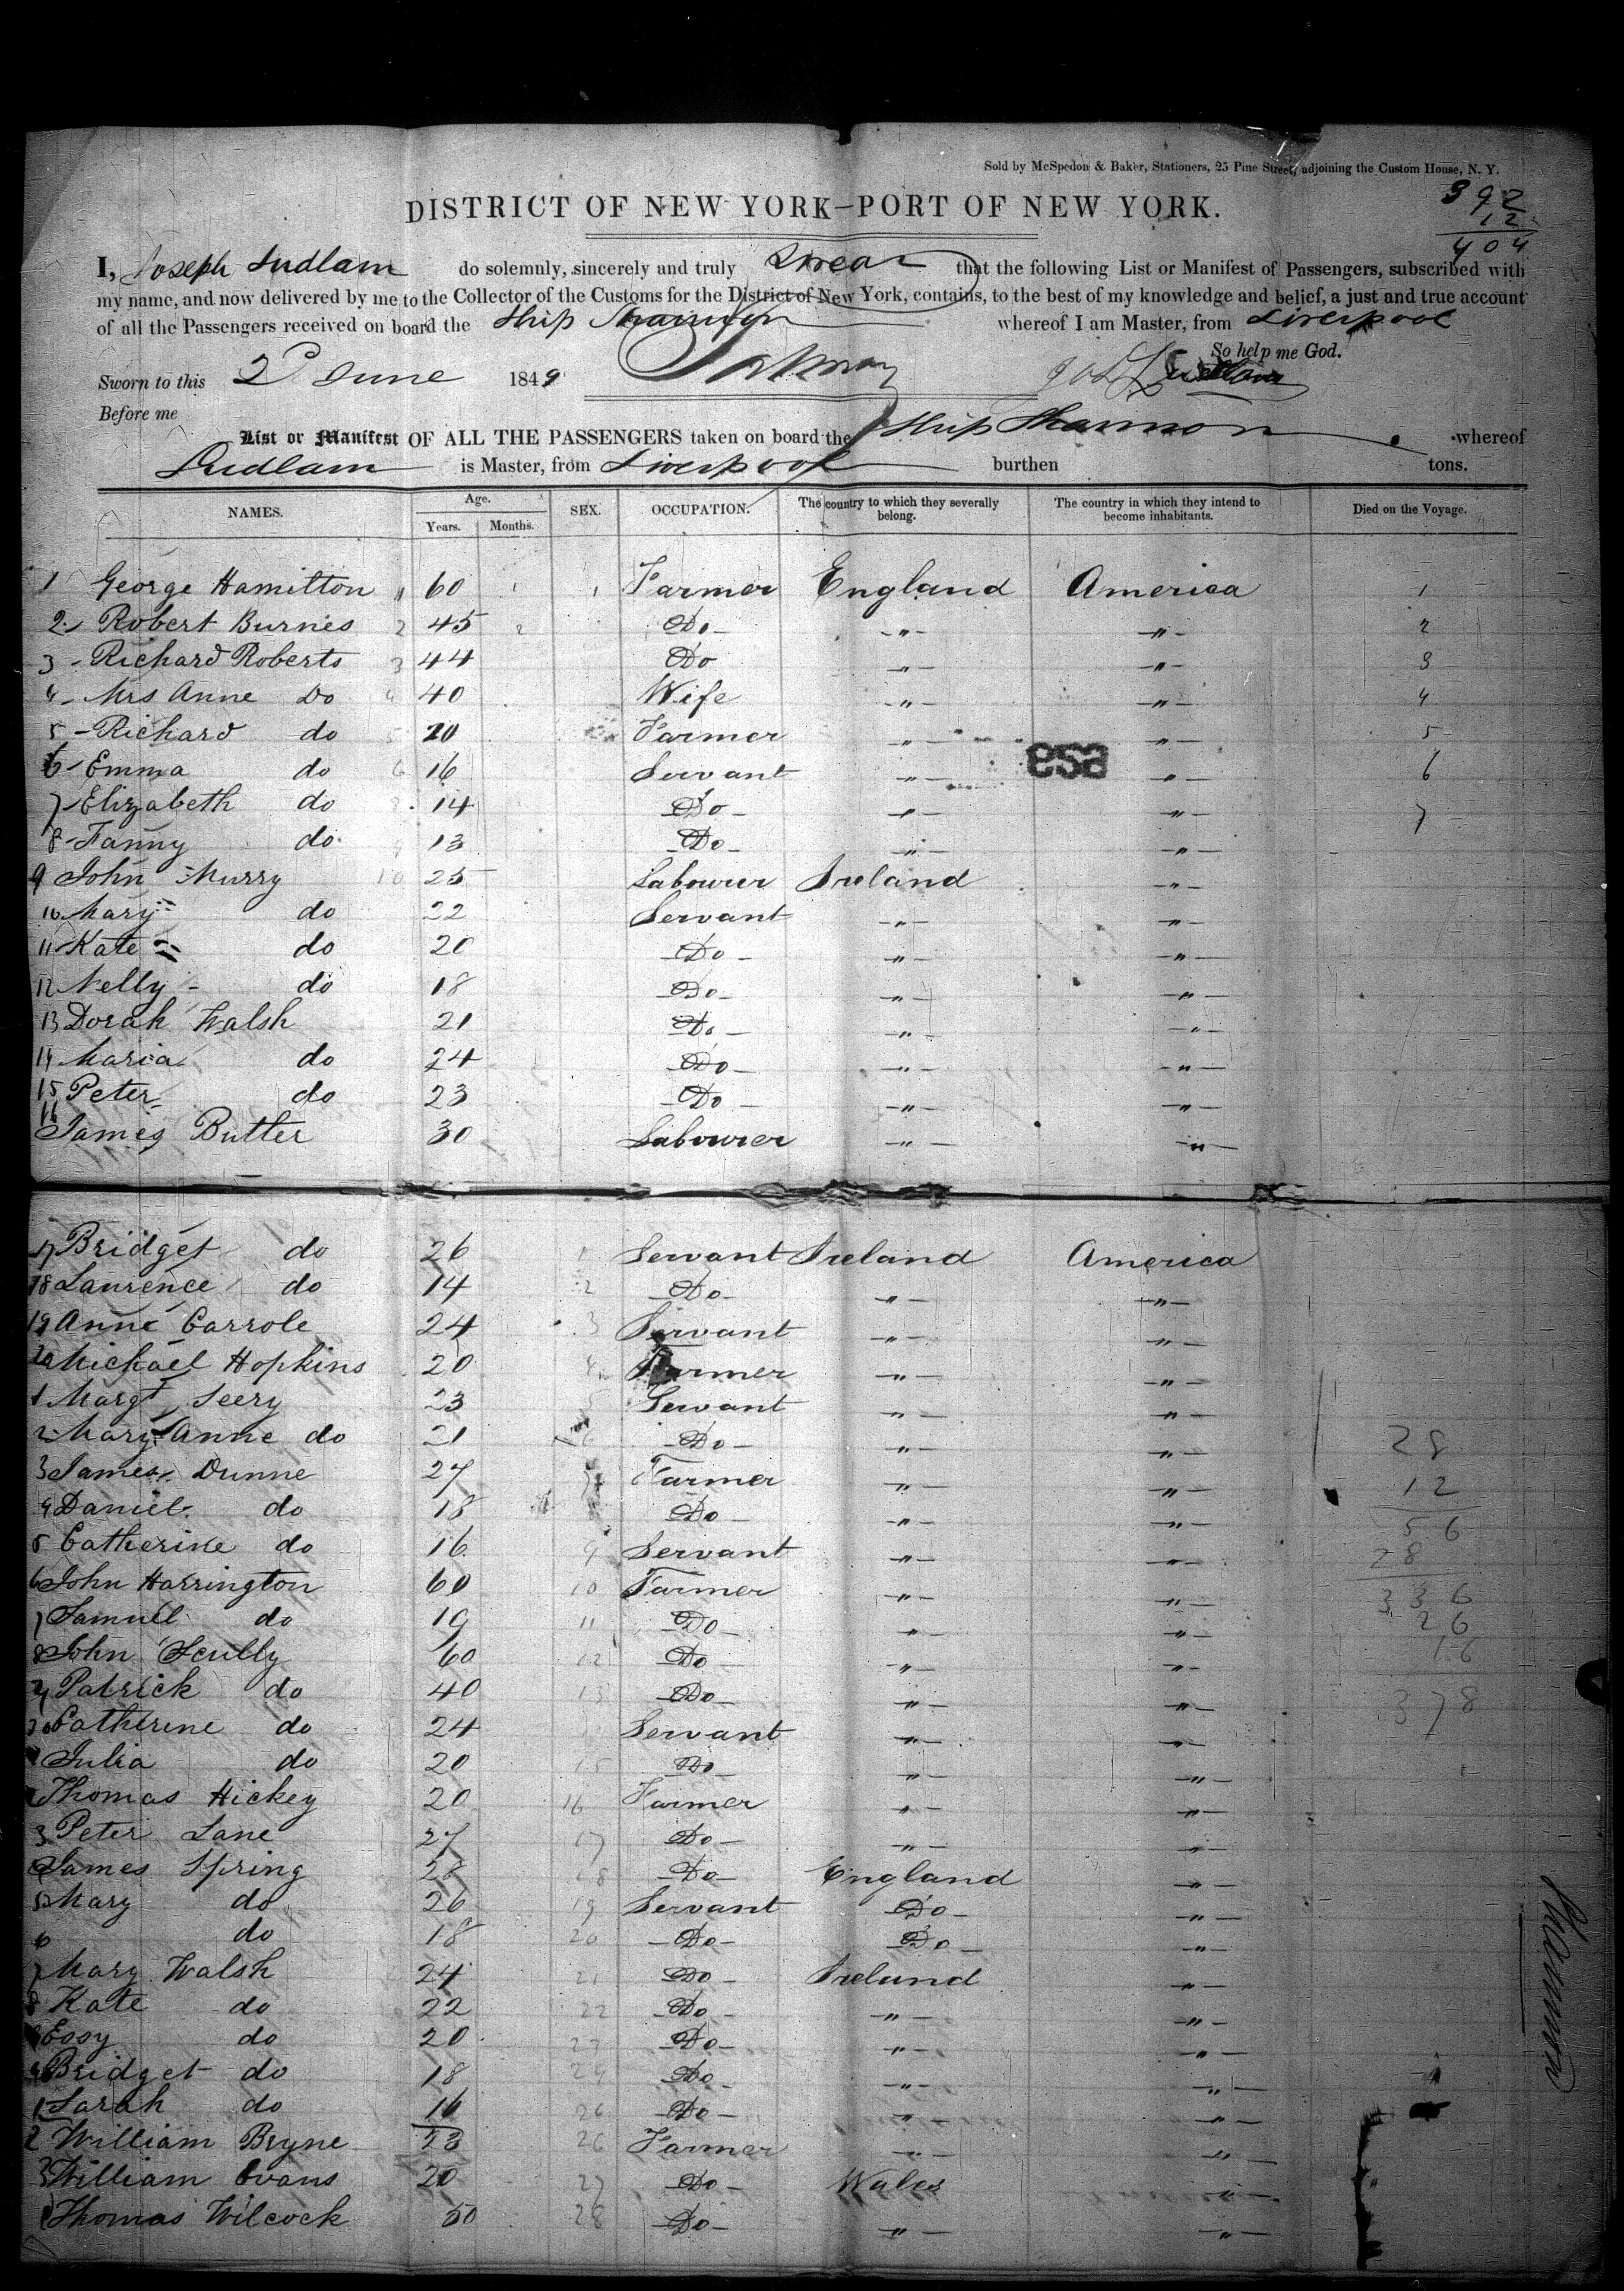 Sold by McSpedon & Baker, Stationers, 25 Pine Street, adjoining the Custom House, N. Y.
392
12
404
DISTRICT OF NEW YORK—PORT OF NEW YORK.
I, Joseph Ludlam do solemnly, sincerely and truly Swear that the following List or Manifest of Passengers, subscribed with
my name, and now delivered by me to the Collector of the Customs for the District of New York, contains, to the best of my knowledge and belief, a just and true account
of all the Passengers received on board the Ship Shannon whereof I am Master, from Liverpool
So help me God.
Sworn to this 2 June 1849 Jos Ludlam
Before me
List or Manifest OF ALL THE PASSENGERS taken on board the Ship Shannon whereof
Ludlam is Master, from Liverpool burthen tons.
NAMES. Age. Years. Months. SEX. OCCUPATION. The country to which they severally belong. The country in which they intend to become inhabitants. Died on the Voyage.
1 George Hamilton 1 60 1 1 Farmer England America 1
2 - Robert Burnes 2 45 2 Do - - " - - " - 2
3 - Richard Roberts 3 44 Do - " - - " - 3
4 - Mrs Anne Do 4 40 Wife - " - - " - 4
5 - Richard do 5 20 Farmer - " - - " - 5
6 - Emma do 6 16 Servant - " - - " - 6
esa
7 - Elizabeth do 8 14 Do - - " - - " - 7
8 - Fanny do 9 13 Do - - " - - " -
9 John Murry 10 25 Labourer Ireland - " -
10 Mary do 22 Servant - " - - " -
11 Kate do 20 Do - - " - - " -
12 Nelly - do 18 Do - - " - - " -
13 Dorah Walsh 21 Do - - " - - " -
14 Maria do 24 Do - - " - - " -
15 Peter do 23 Do - - " - - " -
16 James Butler 30 Labourer - " - - " -
17 Bridget do 26 1 Servant Ireland America
18 Laurence do 14 2 Do - - " - - " -
19 Anne Carrole 24 3 Servant - " - - " -
20 Michael Hopkins 20 4 Farmer - " - - " -
1 Margt Seery 23 5 Servant - " - - " -
2 Mary Anne do 21 6 Do - - " - - " - 28
3 James Dunne 27 7 Farmer - " - - " - 12
4 Daniel do 18 Do - - " - - " - 56
5 Catherine do 16 9 Servant - " - - " - 28
6 John Harrington 60 10 Farmer - " - - " - 336
7 Samuel do 19 11 Do - - " - - " - 26
8 John Scully 60 12 Do - - " - - " - 16
29 Patrick do 40 13 Do - - " - - " - 378
30 Catherine do 24 Servant - " - - " -
Julia do 20 15 Do - - " - - " -
Thomas Hickey 20 16 Farmer - " - - " -
3 Peter Lane 27 17 Do - - " - - " -
James Spring 28 18 Do - England - " -
5 Mary do 26 19 Servant Do - - " -
6 do 18 20 Do - Do - - " -
7 Mary Walsh 24 21 Do - Ireland - " -
8 Kate do 22 22 Do - - " - - " -
Essy do 20 23 Do - - " - - " -
Bridget do 18 24 Do - - " - - " -
1 Sarah do 16 26 Do - - " - - " -
2 William Bryne 23 26 Farmer - " - - " -
3 William Evans 20 27 Do - Wales - " -
Thomas Wilcock 50 28 Do - - " - - " -
Shannon